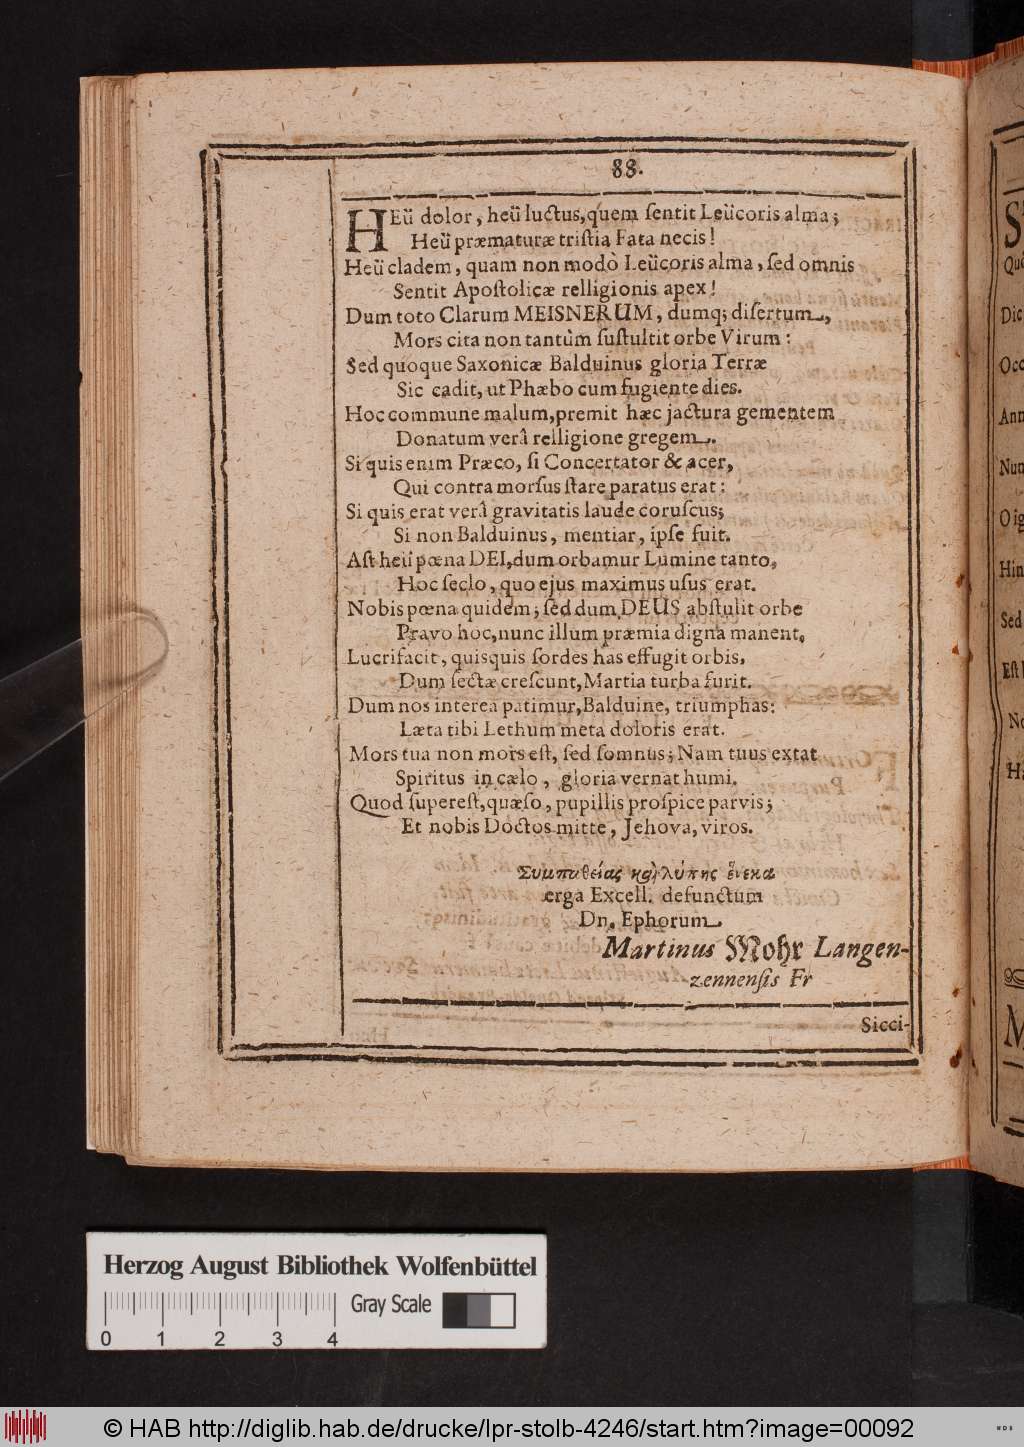 88.
HEü dolor, heü luctus, quem ſentit Leücoris alma;
Heü præmaturæ triſtia Fata necis!
Heü cladem, quam non modò Leücoris alma, ſed omnis
Sentit Apoſtolicæ relligionis apex!
Dum toto Clarum MEISNERUM, dumq; diſertum,
Mors cita non tantùm ſuſtultit orbe Virum:
Sed quoque Saxonicæ Balduinus gloria Terræ
Sic cadit, ut Phæbo cum fugiente dies.
Hoc commune malum, premit hæc jactura gementem
Donatum verâ relligione gregem.
Si quis enim Præco, ſi Concertator & acer,
Qui contra morſus ſtare paratus erat:
Si quis erat verâ gravitatis laude coruſcus;
Si non Balduinus, mentiar, ipſe fuit.
Aſt heü pœna DEI, dum orbamur Lumine tanto,
Hoc ſeclo, quo ejus maximus uſus erat.
Nobis pœna quidem; ſed dum DEUS abſtulit orbe
Pravo hoc, nunc illum præmia digna manent.
Lucrifacit, quisquis ſordes has effugit orbis,
Dum ſectæ creſcunt, Martia turba furit.
Dum nos interea patimur, Balduine, triumphas:
Læta tibi Lethum meta doloris erat.
Mors tua non mors eſt, ſed ſomnus; Nam tuus extat
Spiritus in cælo, gloria vernat humi.
Quod ſupereſt, quæſo, pupillis proſpice parvis;
Et nobis Doctos mitte, Jehova, viros.
Συμπαθείας καὶ λύπης ἕνεκα
erga Excell. defunctum
Dn. Ephorum
Martinus Mohr Langen-
zennenſis Fr
Sicci-
Dic
Occ
Ann
Nun
Hin
Sed
Eſt
Herzog August Bibliothek Wolfenbüttel
Gray Scale
0 1 2 3 4
© HAB http://diglib.hab.de/drucke/lpr-stolb-4246/start.htm?image=00092